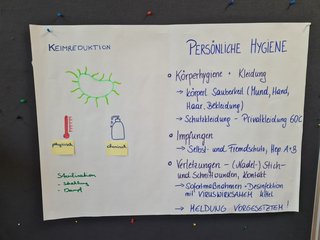 KEIMREDUKTION
physisch
chemisch
Sterilisation
- Strahlung
- Dampf
PERSÖNLICHE HYGIENE
Körperhygiene + Kleidung
→ Körperl. Sauberkeit (Mund, Hand,
Haar, Bekleidung)
→ Schutzkleidung - Privatkleidung 60C
Impfungen
→ Selbst- und Fremdschutz, Hep A+B
Verletzungen - (Nadel-) Stich-
und Schnittwunden, Kontakt
→ Sofortmaßnahmen - Desinfektion
mit VIRUSWIRKSAMEM Mittel
→ MELDUNG VORGESETZTEM!